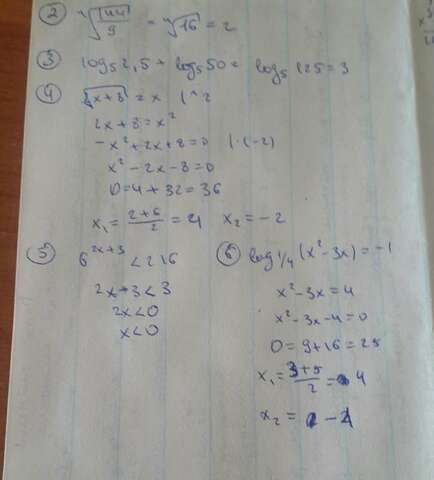 ② ∜(144/9) = ∜16 = 2
③ log₅2,5 + log₅50 = log₅125 = 3
④ √(2x+8) = x |^2
2x+8=x²
-x²+2x+8=0 |·(-2)
x²-2x-8=0
D=4+32=36
x₁ = (2+6)/2 = 4 x₂ = -2
⑤ 6^(2x+3) < 216
2x+3<3
2x<0
x<0
⑥ log1/4(x²-3x) = -1
x²-3x=4
x²-3x-4=0
D=9+16=25
x₁ = (3+5)/2 = 4
x₂ = -1